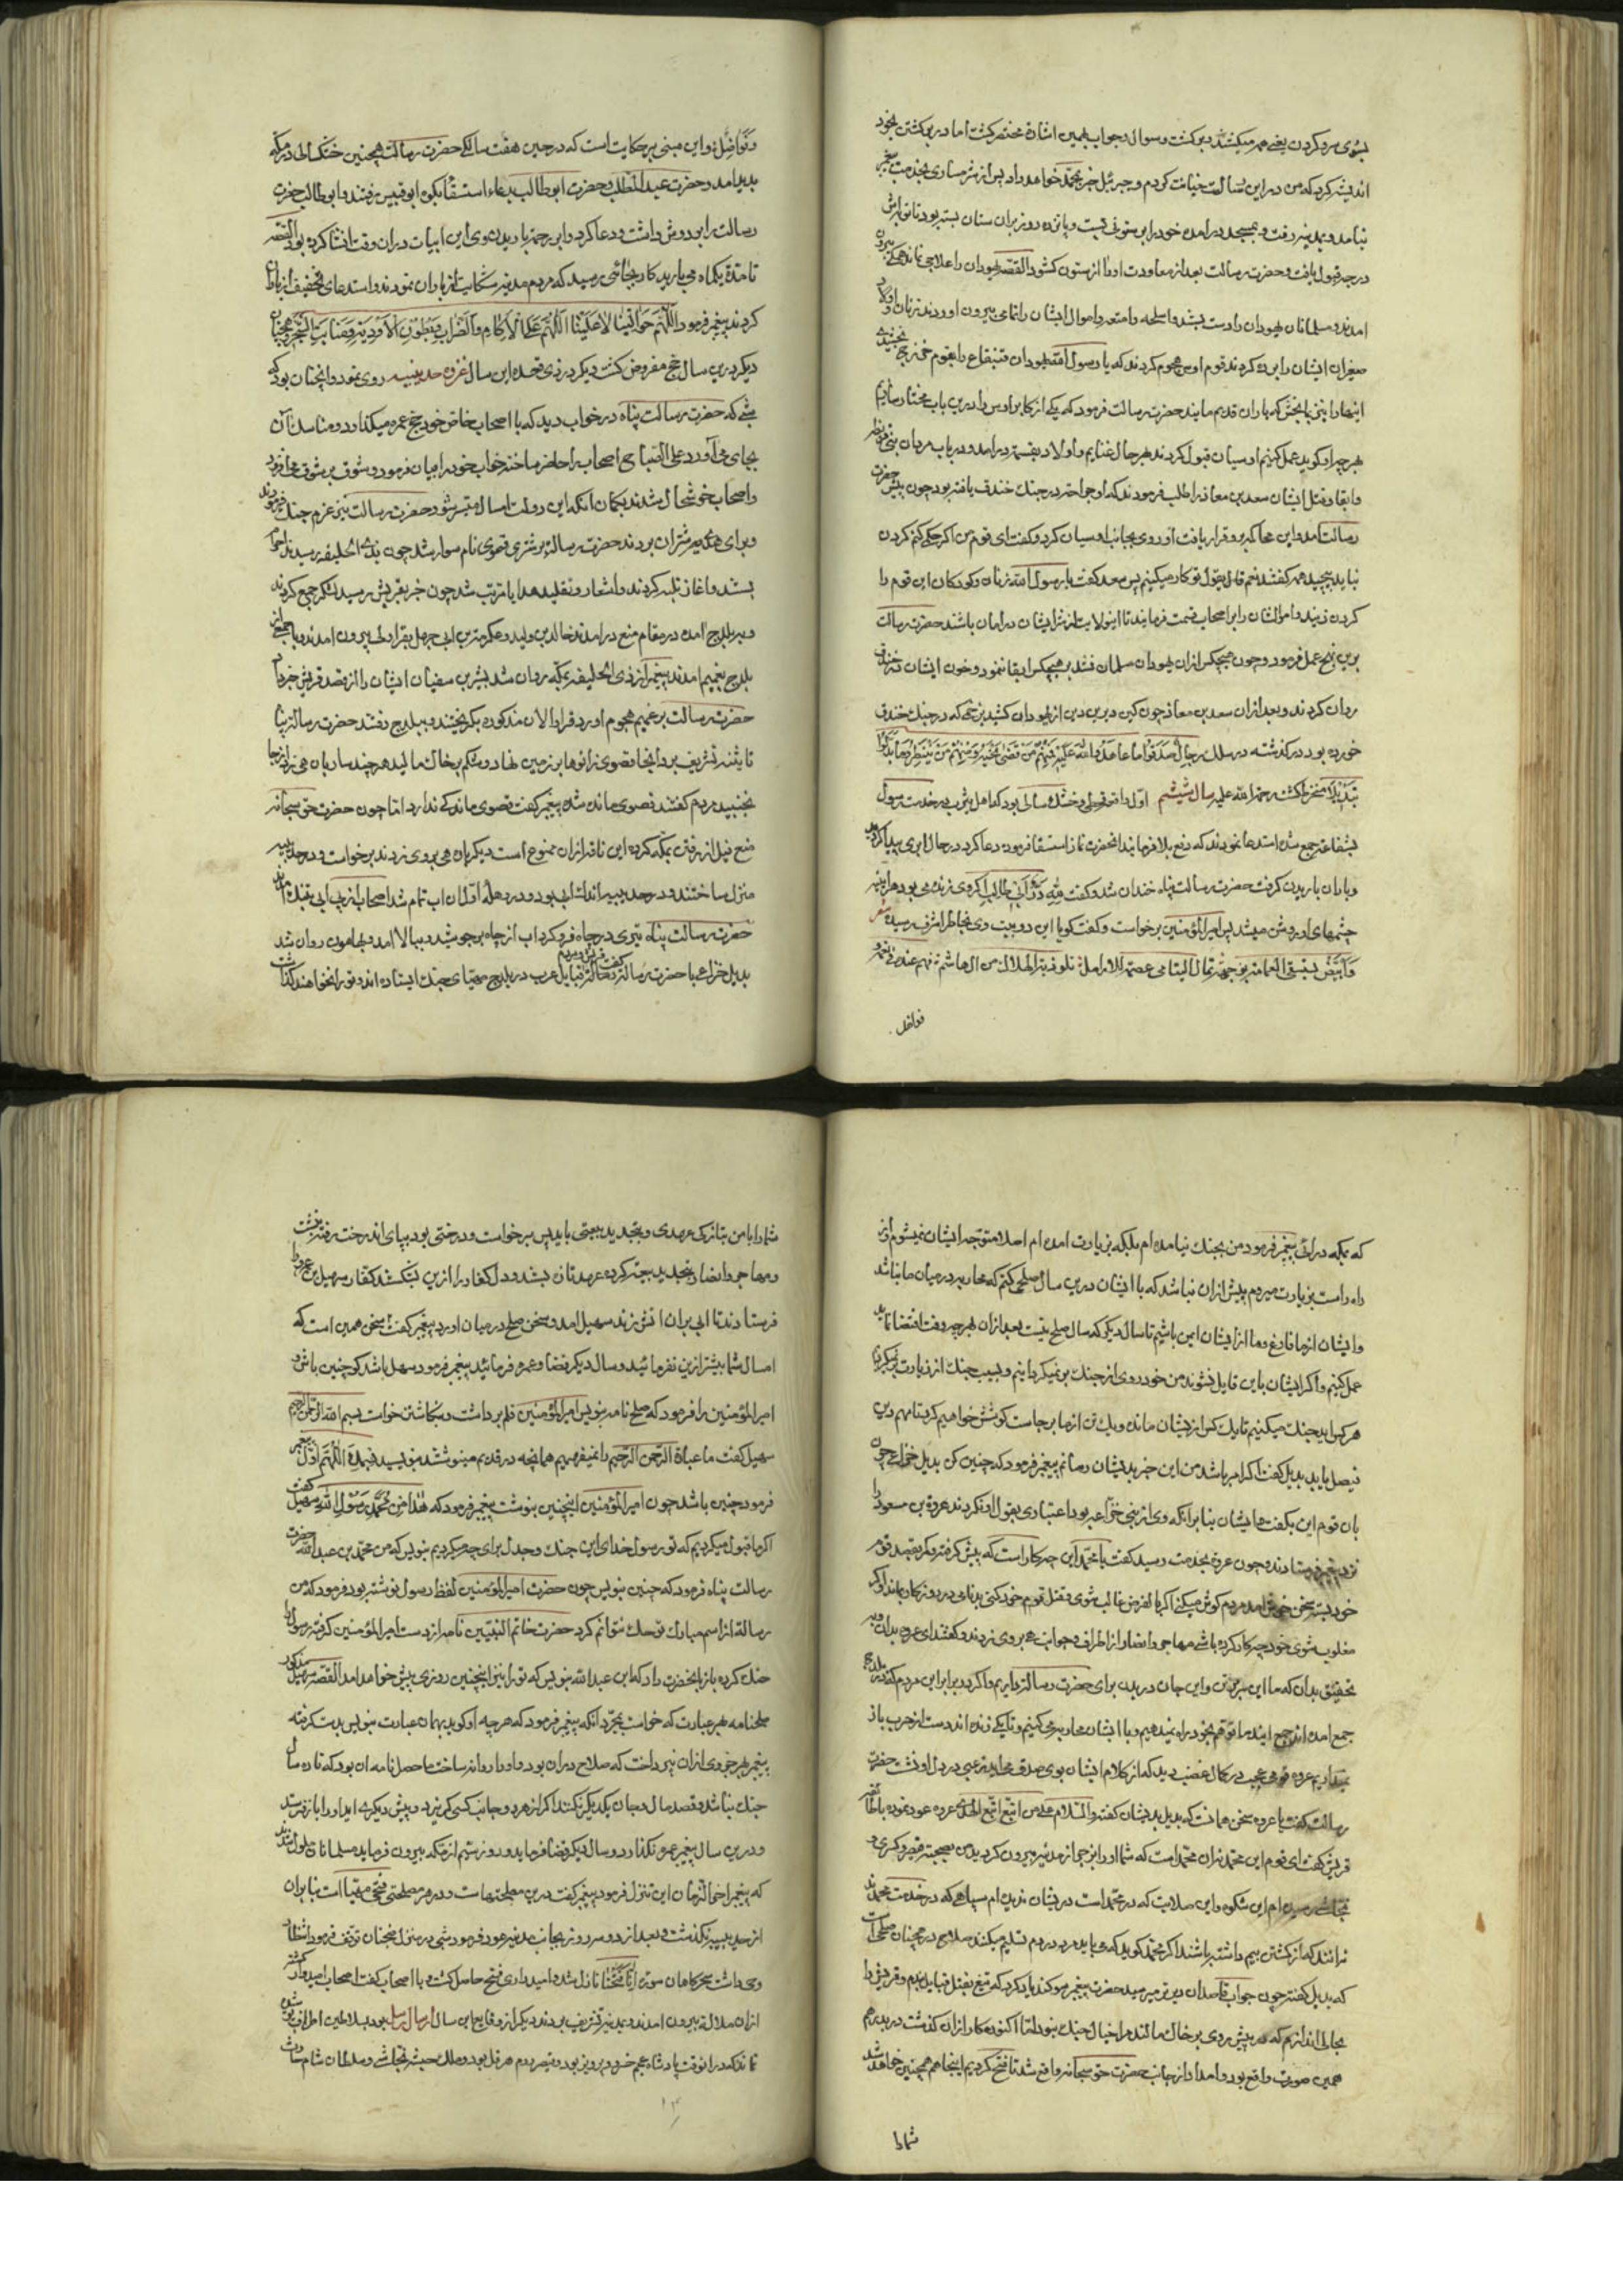 بسوی سر و کردن یعنی همه میکشند و برگشت و سوال و جواب بهمین اشارة مختصر گشت اما در برگشتن بخود
اندیشه کرد که من درین رسالت خیانت کردم و جبرئیل خبر بمحمد خواهد داد پس از شرمساری بخدمت پیغمبر
نیامد و بمدینه رفت و بمسجد درامده خود را بر ستونی بست و پانزده روز بران سان بسته بود تا توبه‌اش
درجه قبول یافت و حضرت رسالت بعد از معاودت او را از ستون گشود القصه یهودان را علاجی نماند همگی بیرون
امدند و مسلمانان یهودان را دست بسته و اسلحه و امتعه و اموال ایشان را تمامی بیرون اوردند زنان و اولاد
صغیران ایشان را برده کردند قوم اوس هجوم کردند که یا رسول الله یهودان قینقاع را بقوم خزرج بخشیدی
اینها را نیز بما بخش که یاران قدیم مایند حضرت رسالت فرمود که یکی از اکابر اوس را درین باب مختار سازیم
هر چه او گوید عمل کنیم اوسیان قبول کردند بهر حال غنایم و اولاد بقسمت درامد و در باب مردان بنی قریظه
و ابقا و قتل ایشان سعد بن معاذ را طلب فرمودند که او جراحت در جنک خندق یافته بود چون پیش حضرت
رسالت امد و این محاکمه برو قرار یافت او روی بجانب اوسیان کرد و گفت ای قوم من اگر حکمی کنم گردن
نباید پیچید همه گفتند نعم قائل بقول تو کار میکنیم پس سعد گفت یا رسول الله زنان و کودکان این قوم را
گردن زنید و اموالشان را بر اصحاب قسمت فرمایند تا اینولایت از شر ایشان در امان باشند حضرت رسالت
برین نهج عمل فرمود و چون هیچکس ازان یهودان مسلمان نشد بر هیچکس ابقا ننمود و خون ایشان در خندق
روان کردند و بعد ازان سعد بن معاذ چون کین دیرین از یهودان کشید بزخمی که در جنک خندق
خورده بود درگذشته در سلک رجال صدقوا ما عاهدوا الله علیه فمنهم من قضی نحبه و منهم من ینتظر و ما بدلوا
تبدیلا منخرط گشت رحمة الله علیه سال ششم اول واقعه قحطی و خشک سالی بود که اهل یثرب در خدمت رسول
بشفاعت جمع شده استدعا نمودند که دفع بلا فرمایند انحضرت نماز استسقا فرموده دعا کرد در حال ابری پیدا گردید
و باران باریدن گرفت حضرت رسالت پناه خندان شد و گفت لله در ابی طالب اگر وی زنده می بود هراینه
چشمهای او روشن میشد پس امیر المؤمنین برخاست و گفت گویا این دو بیت وی بخاطر اشرف رسیده شعر
و ابیض یستسقی الغمامة بوجهه ثمال الیتامی عصمة للارامل تلوذ به الهلاک من ال هاشم فهم عنده فی نعمة و
فواضل
و فواضل و این مبنی بر حکایت است که در حین هفت سالگی حضرت رسالت همچنین خشکسالی در مکه
پدید امد و حضرت عبد المطلب و حضرت ابوطالب بدعاء استسقا بکوه ابوقبیس رفتند و ابوطالب حضرت
رسالت را بر دوش داشت و دعا کرد و ابر رحمت باریدن وی این ابیات دران وقت انشا کرده بود القصه
تا مدة یکماه می بارید کار بجائی رسید که مردم مدینه شکایت از باران نمودند و استدعای تخفیف از بارا
کردند پیغمبر فرمود اللهم حوالینا لا علینا اللهم علی الاکام و الضراب و بطون الاودیة و منابت الشجر همچنان
دیگر درین سال حج مفروض گشت دیگر در ذی قعده این سال غزوه حدیبیه روی نمود و انچنان بود که
شبی که حضرت رسالت پناه در خواب دید که با اصحاب خاص خود حج عمره میگذارد و مناسک آن
بجای می آورد علی الصباح اصحاب را حاضر ساخته خواب خود را بیان فرمود و شوق بر شوق می افزود
و اصحاب خوشحال شدند بگمان انکه این دولت امسال میسر شود حضرت رسالت نیز عزم جنک فرمودند
و برای هدی شتران بردند حضرت رسالة بر شتری قصوی نام سوار شد چون بذی الحلیفه رسیدند احرام
بستند و اغاز تلبیه کردند و اشعار و تقلید هدایا مرتب شد چون خبر بقریش رسید لشکر جمع کردند
و ببلدح امده در مقام منع درامدند خالد بن ولید و عکرمة بن ابی جهل بقراولی بیرون امدند و با جمعی از
بلدح بغمیم امدند پیغمبر از ذی الحلیفه بمکه روان شد بشر بن سفیان ایشان را از قصد قریش خبر داد
حضرت رسالت بر غمیم هجوم اورد قراولان مذکوره بگریختند و ببلدح رفتند حضرت رسالة پنا
تا بثنیه تشریف برد انجا قصوی زانوها بر زمین نهاد و شکم بر خاک مالید هر چند ساربان هی زد از جا
نجنبید مردم گفتند قصوی مانده شده پیغمبر گفت قصوی ماندگی ندارد اما چون حضرت حق سبحانه
منع فیل از رفتن بمکه کرده این ناقه ازان ممنوع است دیگر بان هی بروی زدند برخواست و در حدیبیه
منزل ساختند و در حدیبیه اندک ابی بود و در وهلهٔ اول ان اب تمام شد اصحاب از بی ابی بفغان امدند
حضرت رسالت پناه تیری در چاه فرو کرد اب از چاه برجوشید و ببالا امد و بهامون روان شد
بدیل خزاعی با حضرت رسالة گفت قریش و مردم قبایل عرب در بلدح مهیای جنک ایستاده اند و تو را نخواهند گذاشت
که بمکه درائی پیغمبر فرمود من بجنک نیامده ام بلکه بزیارت امده ام اصلا متوجه ایشان نمیشوم و از
راه راست بزیارت میروم بیش ازان نباشد که با ایشان درین سال صلحی کنم که محاربه در میان ما نباشد
و ایشان از ما فارغ و ما از ایشان ایمن باشیم تا سال دیگر که سال صلح نیست بعد ازان بهر چه وقت اقتضا نماید
عمل کنیم و اگر ایشان باین قایل نشوند من خود روی از جنک بر نمیگردانیم و بسبب جنک از زیارت بر نگردیم
هر کس اید جنک میکنیم تا یک کس از یشان مانده و یک تن از ما برجاست کوشش خواهیم کرد تا مهم دین
فیصل یابد بدیل گفت اگر امر باشد من این خبر بدیشان رسانم پیغمبر فرمود که چنین کن بدیل خزاعی چون
بان قوم این بگفت ایشان بنابرانکه وی از بنی خزاعه بود اعتباری بقول او نکردند عروة بن مسعود را
نزد پیغمبر فرستادند و چون عروة بخدمت رسید گفت یا محمد این چه کار است که پیش گرفته و کمر بقصد قوم
خود بسته سخن خویش امد مردم گوش میکن اگر بالفرض غالب شوی و قتل قوم خود کنی بدنامی در روزگار بماند و اگر
مغلوب شوی خود چه کار کرده باشی مهاجر و انصار از اطراف و جوانب هی بروی زدند و گفتند ای عروه بدان و به
تحقیق بدان که ما این سر و تن و این جان در بدن برای حضرت رسالة داریم و اگر دو برابر این مردم که در بلدح
جمع امده اند جمع ایند ما توهم بخود راه نمیدهیم و با ایشان محاربه می کنیم و تا یکی زنده اند دست از حرب باز
نمیداریم عروه قومی عجیب در کمال غضب دید که از کلام ایشان بوی صدق می امد رعبی در دل او نشست حضرت
رسالت گفت یا عروه سخن همانست که بدیل بدیشان گفته والسلام علی من اتبع الهدی عروه عود نموده باطایفه
قریش گفت ای قوم این محمد نه ان محمد است که شما او را بزجر از مدینه بیرون کردید من بصحبت قیصر و کسری و
نجاشی رسیده ام این شکوه و این صلابت که در محمد است در یشان ندیده ام سپاهی که در خدمت محمدند
نه انند که از کشتن بیم داشته باشند اگر محمد گوید که می باید مرد در دم تسلیم میکنند صلاح در همچنان صلحی است
که بدیل گفته چون جواب قاصدان دیر تر میرسید حضرت پیغمبر سوگند یاد کرد که تیغ بقتل قبایل بنهم و قریش را
بحالی اندازم که در پیش روی بر خاک مالند مرا خیال جنک نبود اما اکنون کار ازان گذشت در بدر هم
همین صورت واقع بود و امداد از جانب حضرت حق سبحانه واقع شد تا فتح کردیم اینجا هم همچنین خواهد شد
شما را
شما را با من بتازگی عهدی و بتجدید بیعتی باید پس برخواست و درختی بود بپای اند رخت رفته بنشست
و مهاجر و انصار تجدید بیعت کرده عهد تازه بستند و دل کفار را ازین بشکستند کفار سهیل بن عمرو را
فرستادند تا ابی بران اتش زند سهیل امد و سخن صلح در میان اورد پیغمبر گفت سخن همین است که
امسال شما بیشتر ازین نفرمائید و سال دیگر قضا و عمره فرمائید پیغمبر فرمود سهل باشد گو چنین باش و
امیر المؤمنین را فرمود که صلح نامه بنویس امیر المؤمنین قلم برداشت و نگاشتن خواست بسم الله الرحمن الرحیم
سهیل گفت ما عبارة الرحمن الرحیم را نمیفهمیم همانچه در قدیم مینوشتند بنویسید فبسمک اللهم اول پیغمبر
فرمود چنین باشد چون امیر المؤمنین اینچنین بنوشت پیغمبر فرمود که هذا من محمد رسول الله سهیل گفت
اگر ما قبول میکردیم که تو رسول خدای این جنک و جدل برای چه میکردیم بنویس که من محمد بن عبد الله حضرت
رسالت پناه فرمود که چنین بنویس چون حضرت امیر المؤمنین لفظ رسول نوشته بود فرمود که من
رسالة از اسم مبارک تو حک نتوانم کرد حضرت خاتم النبیین نامه از دست امیر المؤمنین گرفته رسول را
حک کرده باز بانحضرت داد که ابن عبد الله بنویس که تو را نیز اینچنین روزی پیش خواهد امد القصه سهیل مذکور
صلحنامه بهر عبارت که خواست بمجرد انکه پیغمبر فرمود که هر چه او گوید بهمان عبارت بنویس بدست گرفته
پیغمبر بهر جزوی ازان نپرداخت که صلاح دران بود و او را روانه ساخت ما حصل نامه ان بود که تا ده سال
جنک نباشد و قصد مال و جان یکدیگر نکنند اگر از هر دو جانب کسی گریزد و پیش دیگری اید او را باز فرستند
و درین سال پیغمبر عمره نگذارد و سال دیگر قضا فرماید و روز سیم از مکه بیرون فرماید مسلمانان ملول شدند
که پیغمبر اخر الزمان این تنزل فرمود پیغمبر گفت درین مصلحتهاست و در هر مصلحتی فتحی مهیا است بنابران
از حدیبیه نگذشت و بعد از دو سه روز بجانب مدینه عود فرمود شبی در منزل ضجنان توقف فرمود انتظار
وحی داشت سحرگاهان سورة انا فتحنا نازل شد و امیدواری فتح حاصل گشت و با اصحاب گفت اصحاب امیدوار گشته
ازان ملالة بیرون امدند و بمدینه تشریف بردند دیگر از وقایع این سال ارسال رسل بود بسلاطین اطراف پوشیده
نماند که درانوقت پادشاه عجم خسرو پرویز بود و قیصر روم هرقل بود و ملک حبشه نجاشی و سلطان شام حارث